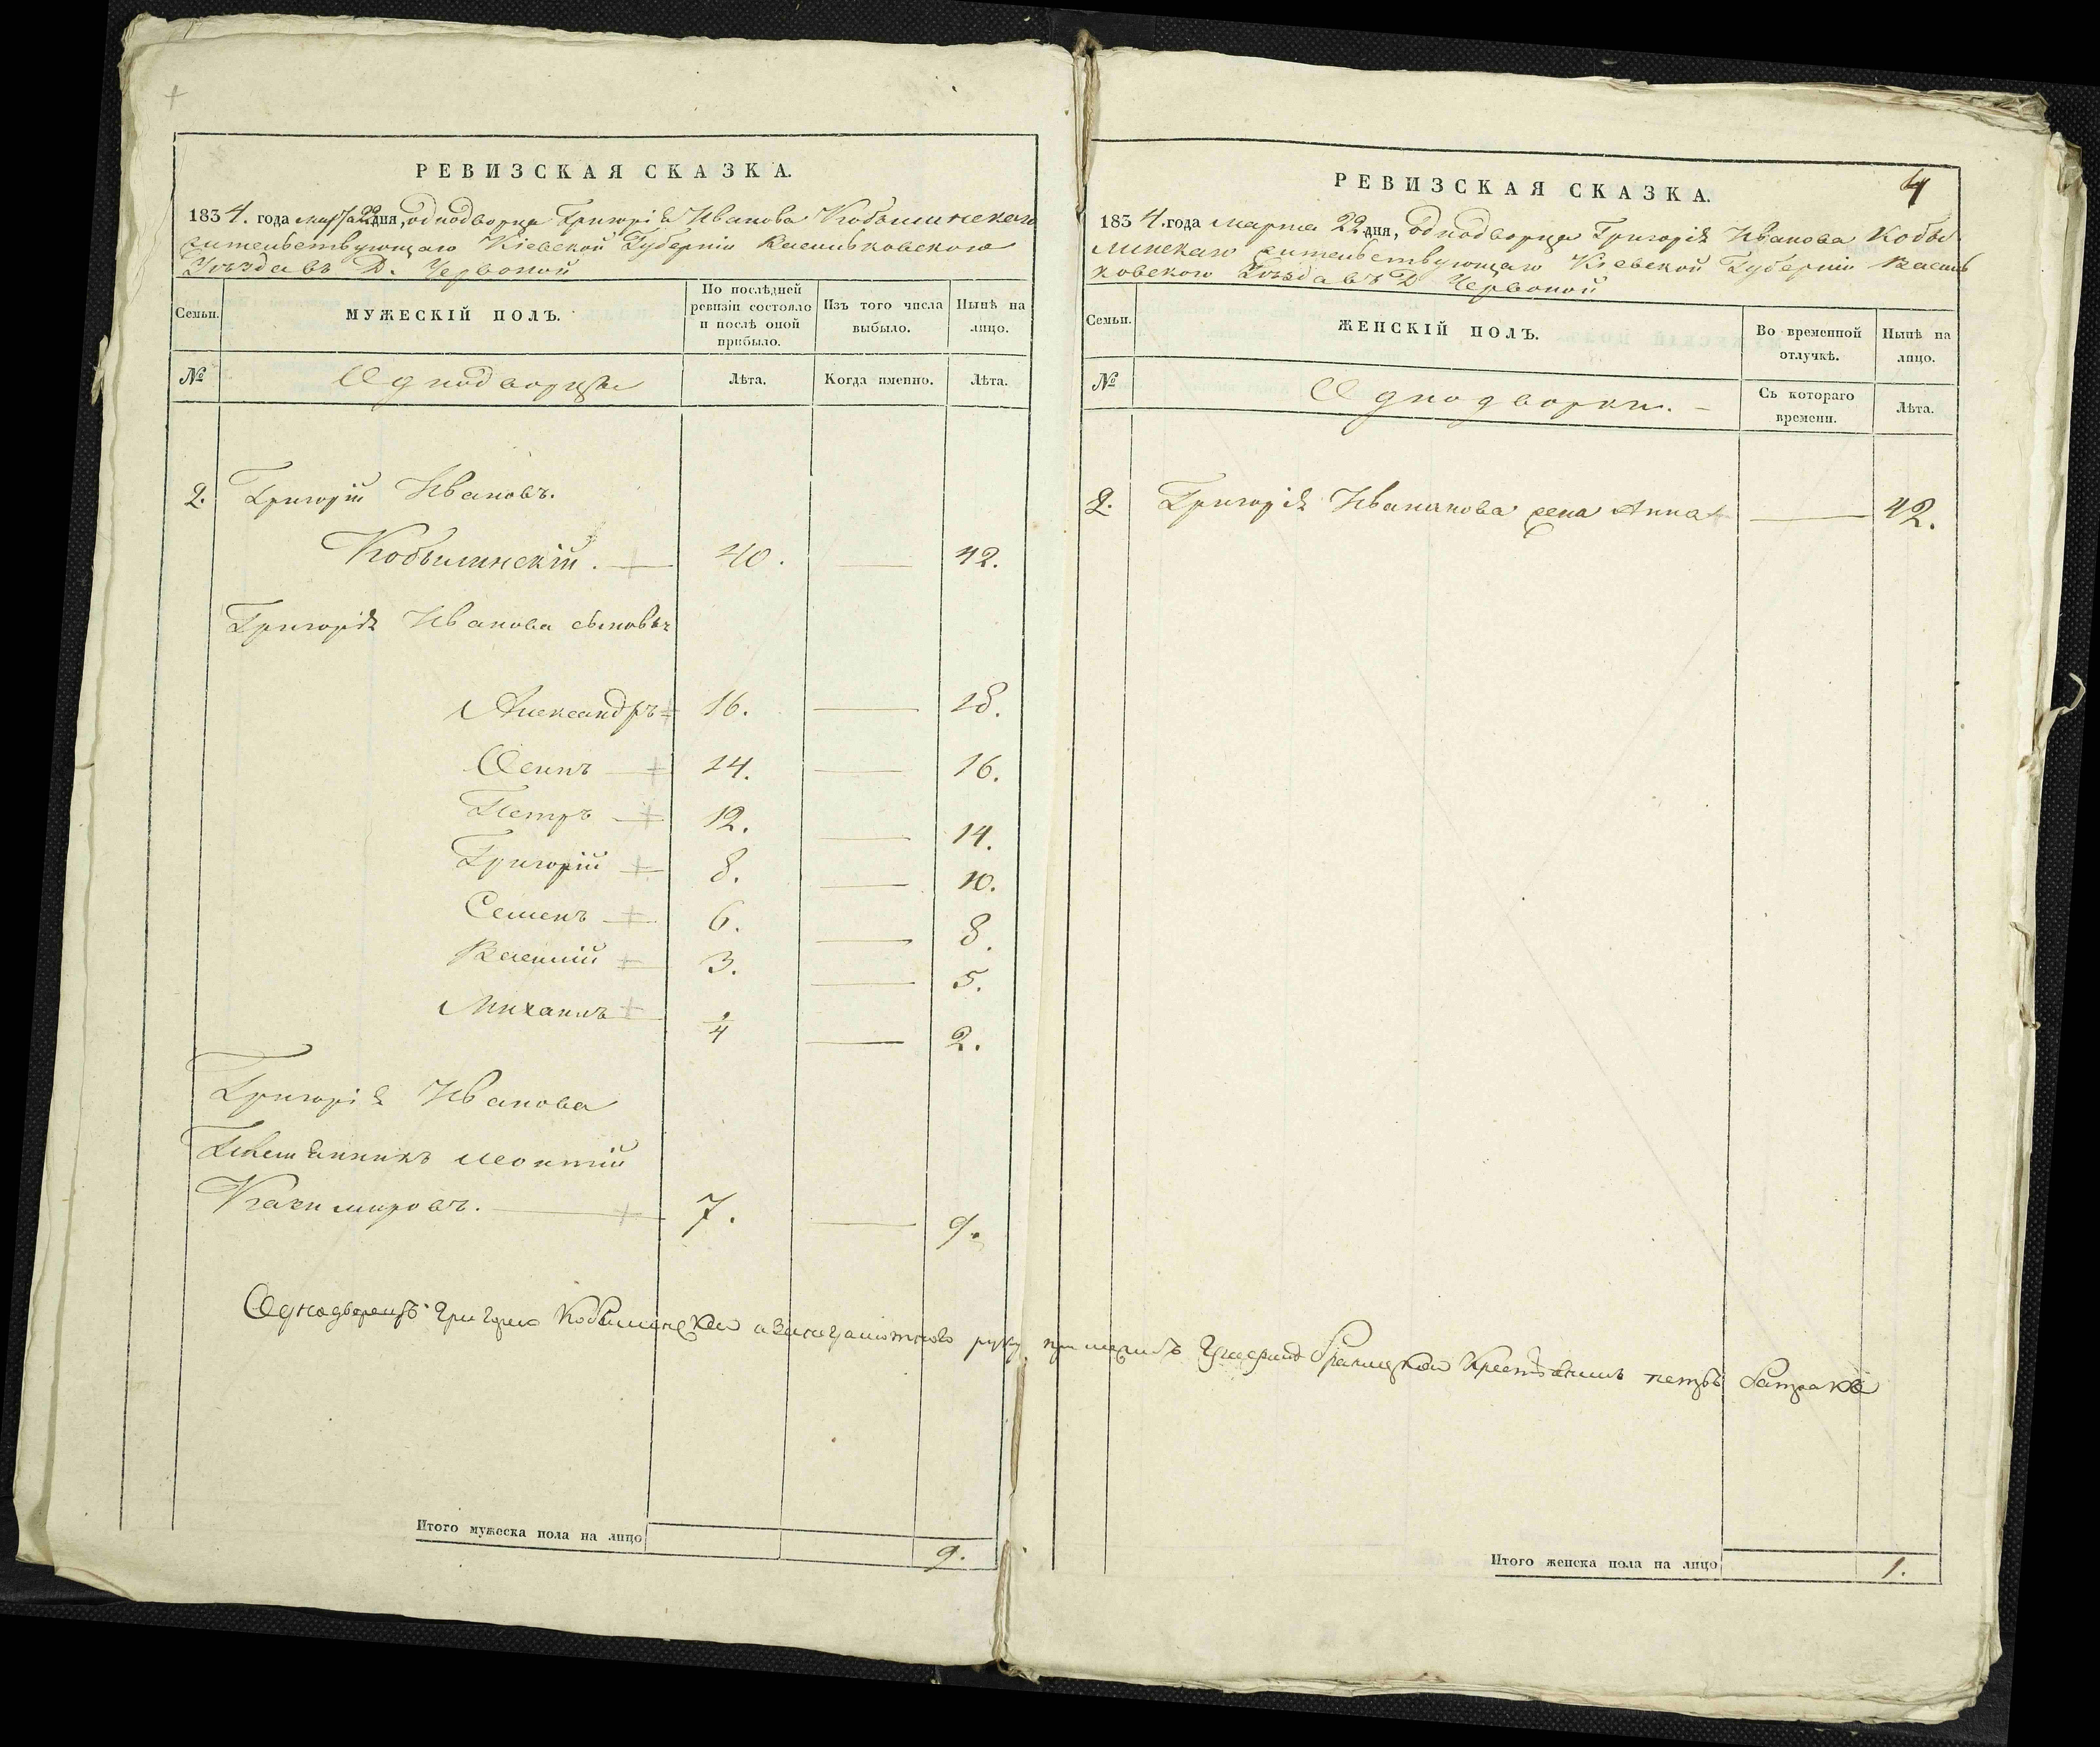 РЕВИЗСКАЯ СКАЗКА.
1834. года марта 22 дня, однодворца Григорія Иванова Кобылинскаго
жительствующаго Кіевской Губерніи Васильковского
Уѣзда въ Д. Червоной
Семьи.
МУЖЕСКІЙ ПОЛЪ.
По послѣдней ревизіи состояло и послѣ оной прибыло.
Изъ того числа выбыло.
Нынѣ на лицо.
№
Однодворцы
Лѣта.
Когда именно.
Лѣта.
2. Григорій Ивановъ.
Кобылинскій. 40. 42.
Григорія Иванова сыновья
Александръ 16. 18.
Осипъ 14. 16.
Петръ 12. 14.
Григорій 8. 10.
Семенъ 6. 8.
Василій 3. 5.
Михаилъ 1/4 2.
Григорія Иванова
Племянникъ Леонтій
Казимировъ. 7. 9.
Итого мужеска пола на лицо 9.
4
РЕВИЗСКАЯ СКАЗКА.
1834. года марта 22 дня, однодворца Григорія Иванова Кобы
линскаго жительствующаго Кіевской Губерніи Василь
ковского Уѣзда въ Д Червоной
Семьи.
ЖЕНСКІЙ ПОЛЪ.
Во временной отлучкѣ.
Нынѣ на лицо.
№
Однодворки.
Съ котораго времени.
Лѣта.
2. Григорія Иванакова жена Анна 42.
Однодворецъ Григорио Кобылинскои руку приложилъ браницкои петръ
Итого женска пола на лицо 1.